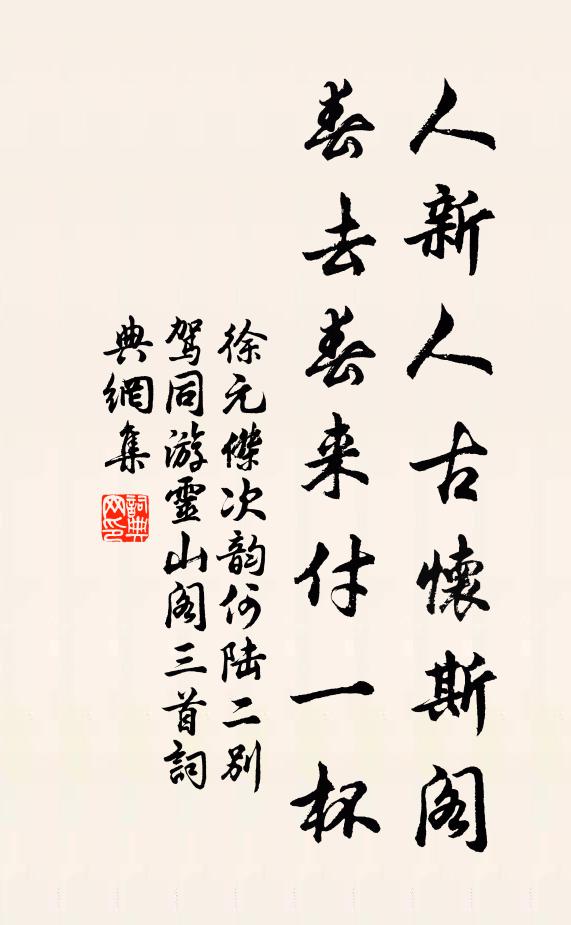 人新人古懷斯阁
春去春来付一杯
徐元傑次韵何陆二别
驾同游靈山阁三首詞
典網集
詞典網印